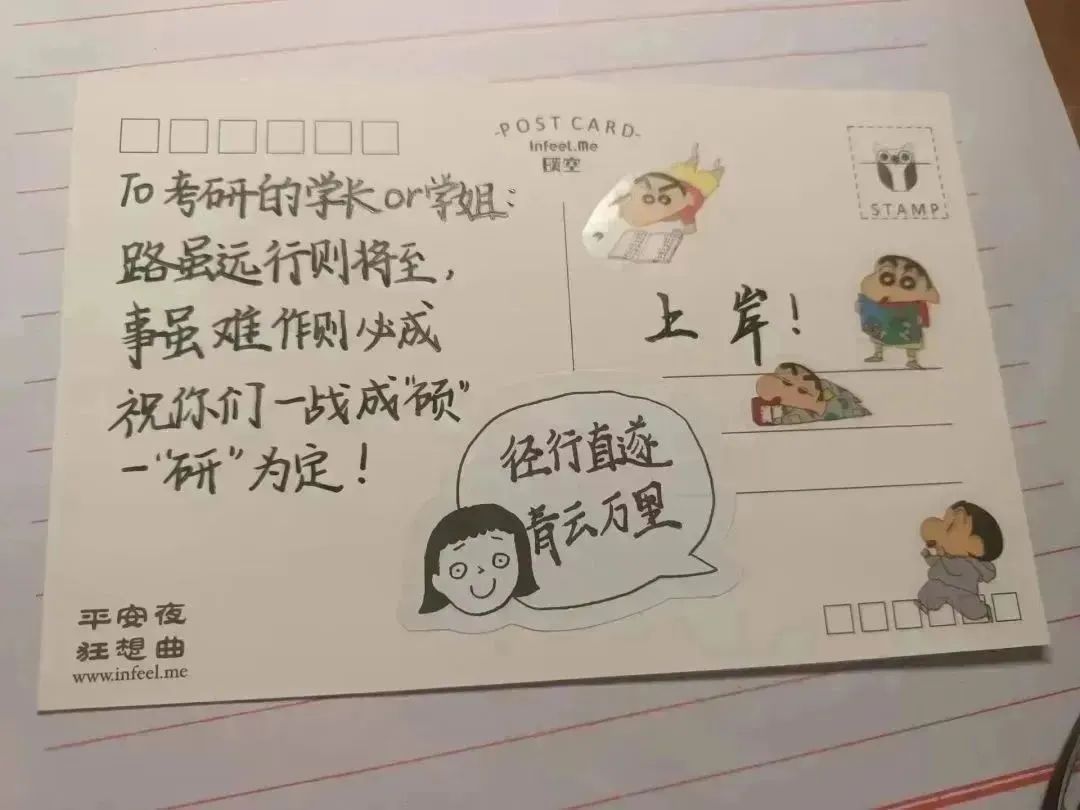 POST CARD
Infeel.Me
To 考研的学长or学姐:
路虽远行则将至,
事虽难作则必成
祝你们一战成"硕"
一"研"为定!
STAMP
上岸!
径行直遂
青云万里
平安夜
狂想曲
www.infeel.me